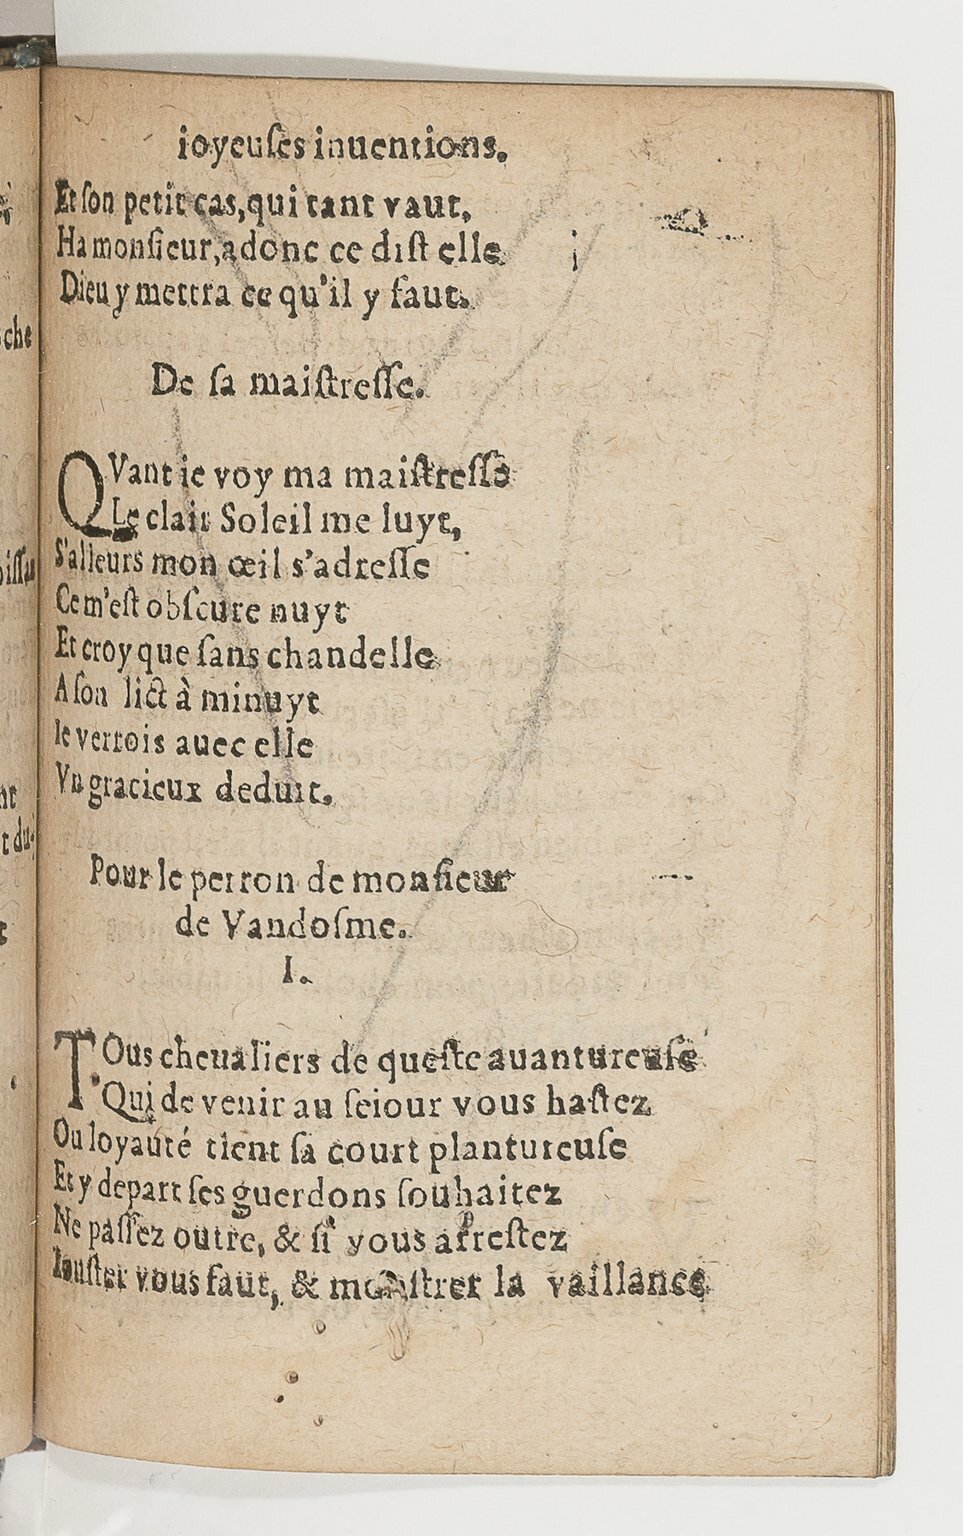 ioyeuſes inuentions.
Et ſon petit cas, qui tant vaut,
Ha monſieur, adonc ce diſt elle
Dieu y mettra ce qu'il y faut.
De ſa maiſtreſſe.
QVant ie voy ma maiſtreſſe
Le clair Soleil me luyt,
S'alleurs mon œil s'adreſſe
Ce m'eſt obſcure nuyt
Et croy que ſans chandelle
A ſon lict à minuyt
Ie verrois auec elle
Vn gracieux deduit.
Pour le perron de monſieur
de Vandoſme.
I.
TOus cheualiers de queſte auantureuſe
Qui de venir au ſeiour vous haſtez
Ou loyauté tient ſa court plantureuſe
Et y depart ſes guerdons ſouhaitez
Ne paſſez outre, & ſi vous arreſtez
Iouſter vous faut, & monſtrer la vaillance
che
oiſſau
nt
t du-